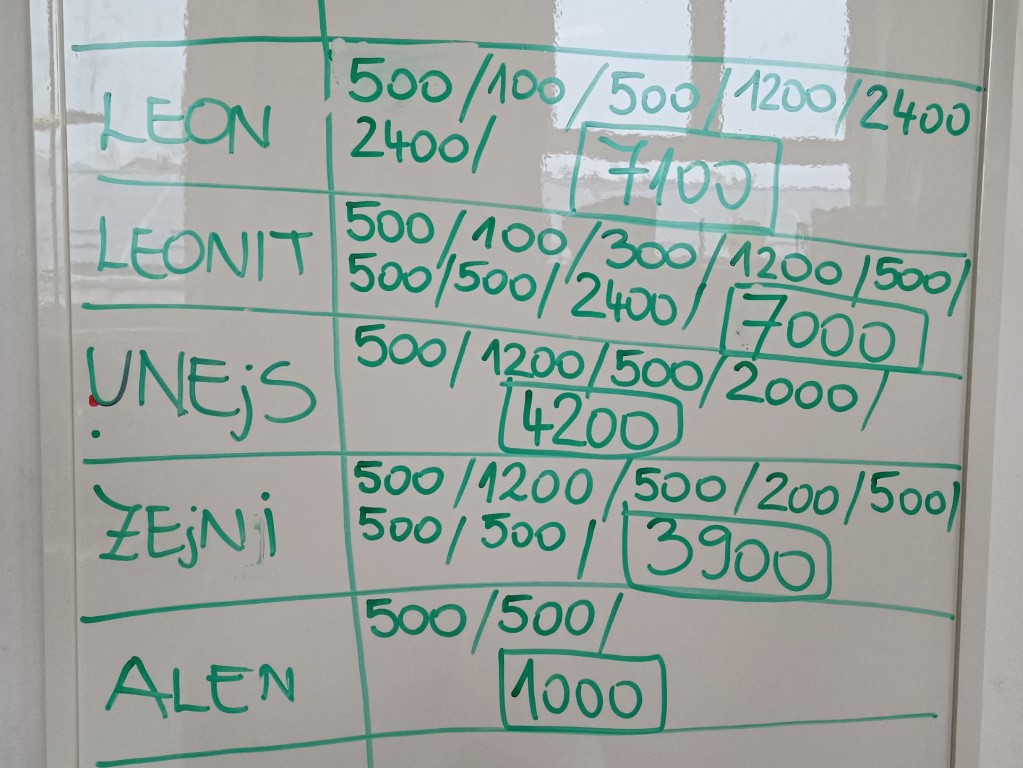 LEON
500/100/500/1200/2400
2400/
7100
LEONIT
500/100/300/1200/500/
500/500/2400/
7000
UNEjS
500/1200/500/2000/
4200
ZEjNi
500/1200/500/200/500/
500/500/
3900
ALEN
500/500/
1000